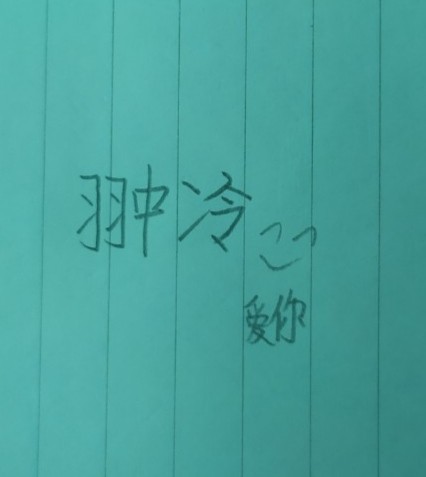 翀冷
爱你